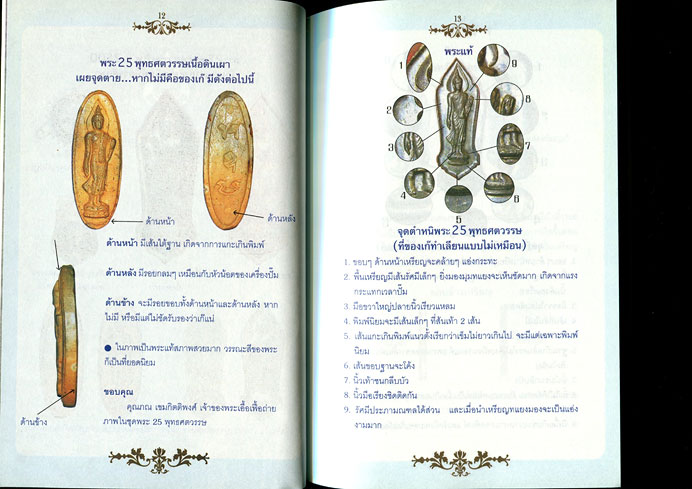 12
พระ 25 พุทธศตวรรษเนื้อดินเผา
เผยจุดตาย...หากไม่มีคือของเก๊ มีดังต่อไปนี้
ด้านหน้า
ด้านหลัง
ด้านหน้า มีเส้นใต้ฐาน เกิดจากการแกะเกินพิมพ์
ด้านหลัง มีรอยกลมๆ เหมือนกับหัวน้อตของเครื่องปั๊ม
ด้านข้าง จะมีรอยขอบทั้งด้านหน้าและด้านหลัง หาก
ไม่มี หรือมีแต่ไม่ชัดรับรองว่าเก๊แน่
● ในภาพเป็นพระแท้สภาพสวยมาก วรรณะสีของพระ
ก็เป็นที่ยอดนิยม
ขอบคุณ
คุณภณ เขมกิตติพงศ์ เจ้าของพระเอื้อเฟื้อถ่าย
ภาพในชุดพระ 25 พุทธศตวรรษ
ด้านข้าง
13
พระแท้
1
9
2
8
3
7
4
6
5
จุดตำหนิพระ 25 พุทธศตวรรษ
(ที่ของเก๊ทำเลียนแบบไม่เหมือน)
1. ขอบๆ ด้านหน้าเหรียญจะคล้ายๆ แอ่งกระทะ
2. พื้นเหรียญมีเส้นรัศมีเล็กๆ ยิ่งมองมุมทแยงจะเห็นชัดมาก เกิดจากแรง
กระแทกเวลาปั๊ม
3. มือขวาใหญ่ปลายนิ้วเรียวแหลม
4. พิมพ์นิยมจะมีเส้นเล็กๆ ที่ส้นเท้า 2 เส้น
5. เส้นแกะเกินพิมพ์แนวตั้งเรียกว่าเข็มไม่ยาวเกินไป จะมีแต่เฉพาะพิมพ์
นิยม
6. เส้นขอบฐานจะโค้ง
7. นิ้วเท้าชนกลีบบัว
8. นิ้วมือเรียงชิดติดกัน
9. รัศมีประภามณฑลได้ส่วน และเมื่อนำเหรียญทแยงมองจะเป็นแอ่ง
งามมาก